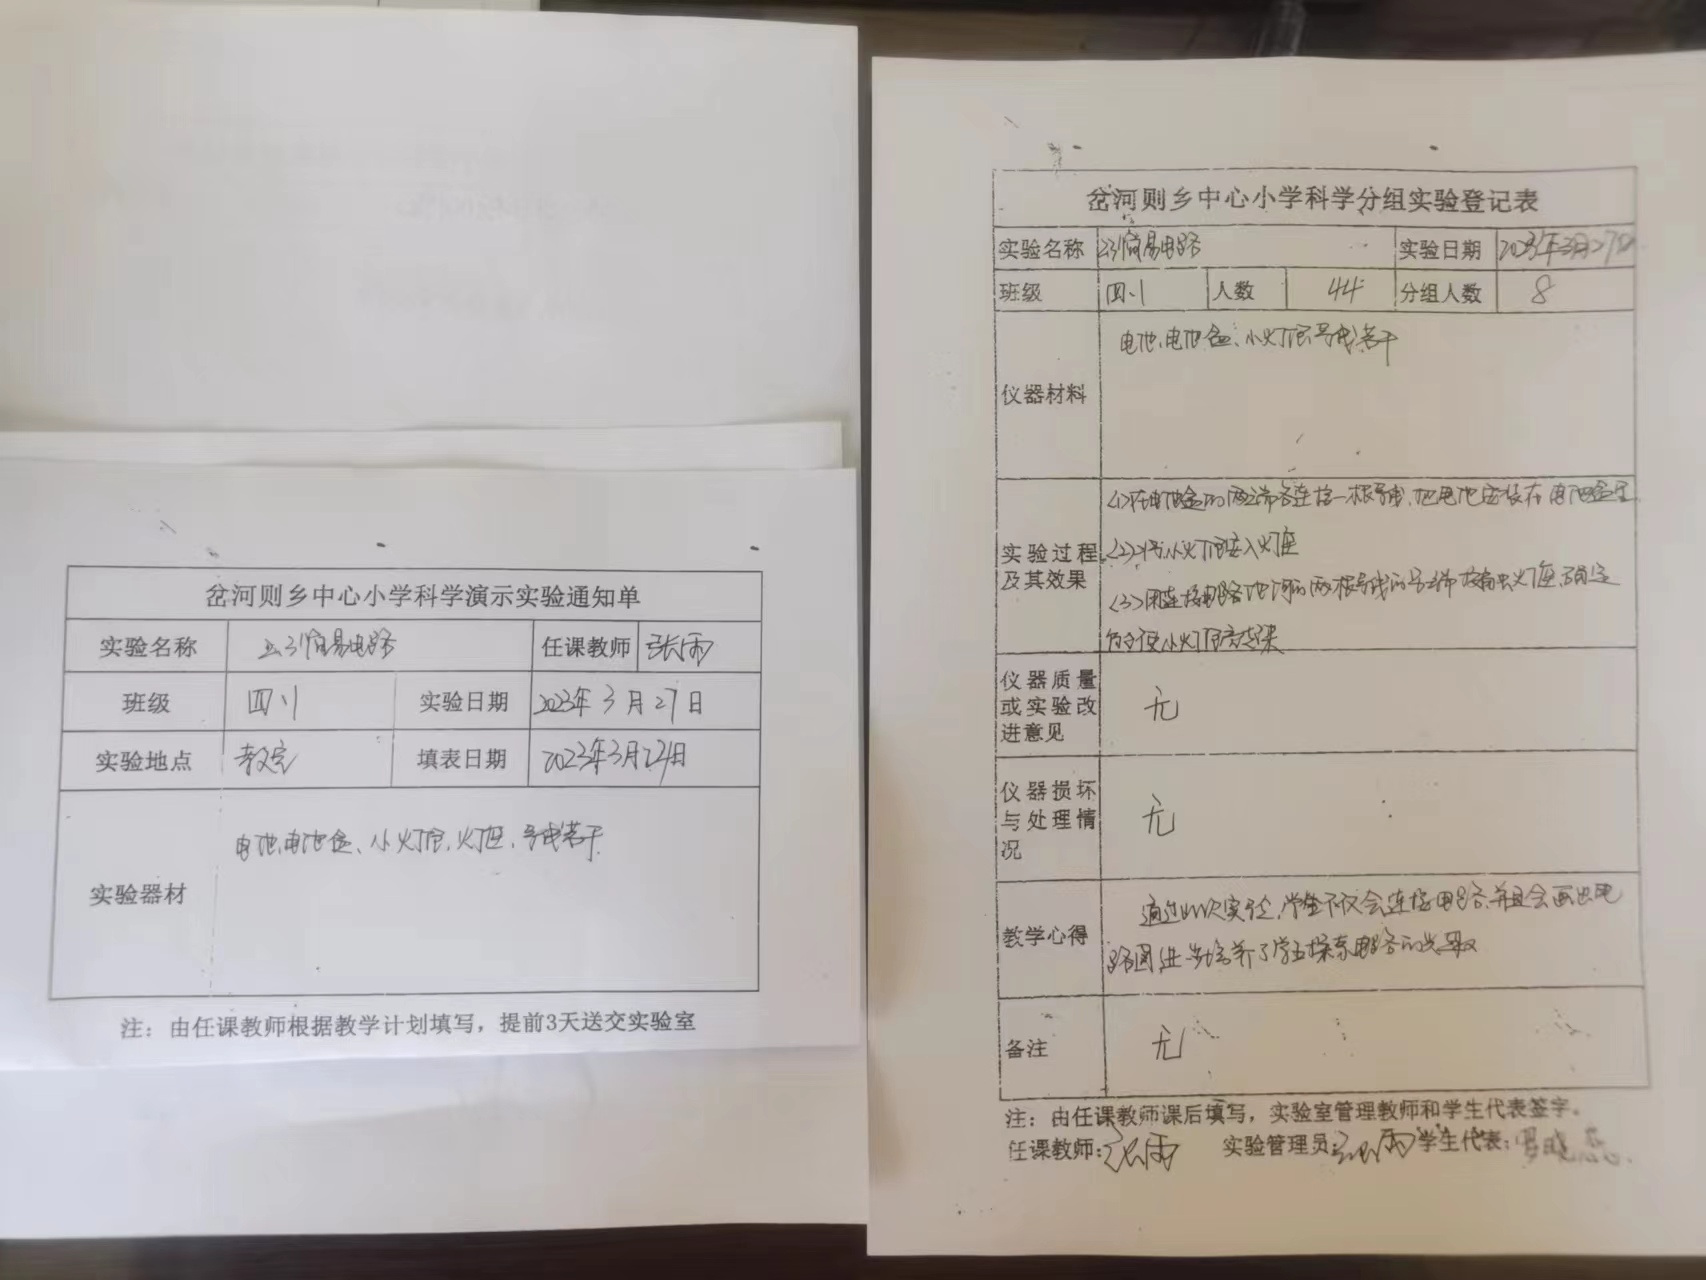 岔河则乡中心小学科学演示实验通知单
实验名称 2.3简易电路 任课教师 张雨
班级 四、1 实验日期 2023年3月27日
实验地点 教室 填表日期 2023年3月24日
实验器材 电池、电池盒、小灯泡、灯座、导线若干
注：由任课教师根据教学计划填写，提前3天送交实验室
岔河则乡中心小学科学分组实验登记表
实验名称 2.3简易电路 实验日期 2023年3月27日
班级 四、1 人数 44 分组人数 8
仪器材料 电池、电池盒、小灯泡、导线若干
实验过程及其效果
<1>在电池盒的两端各连接一根导线，把电池安装在电池盒里
<2>将小灯泡接入灯座
<3>用连接电路 的两根导线的另一端接 灯座，确定
能否使小灯泡亮起来
仪器质量
或实验改
进意见 无
仪器损坏
与处理情
况 无
教学心得 通过此次实验，学生不仅会连接电路，并且会画出电
路图，进一步培养了学生探索电路的兴趣
备注 无
注：由任课教师课后填写，实验室管理教师和学生代表签字。
任课教师：张雨 实验管理员：张雨 学生代表：